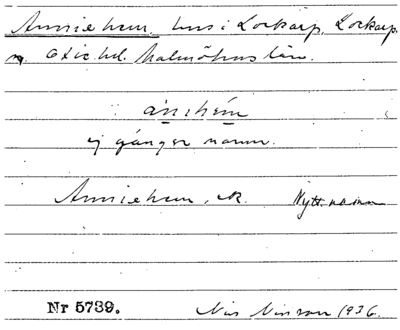 Anniehem, hus i Lockarp, Lockarps
sn. Oxie hd. Malmöhus län.
ànihém
ej gånger namn.
Anniehem, R. Nytt namn
Nr 5739. Nils Nilsson 1936.